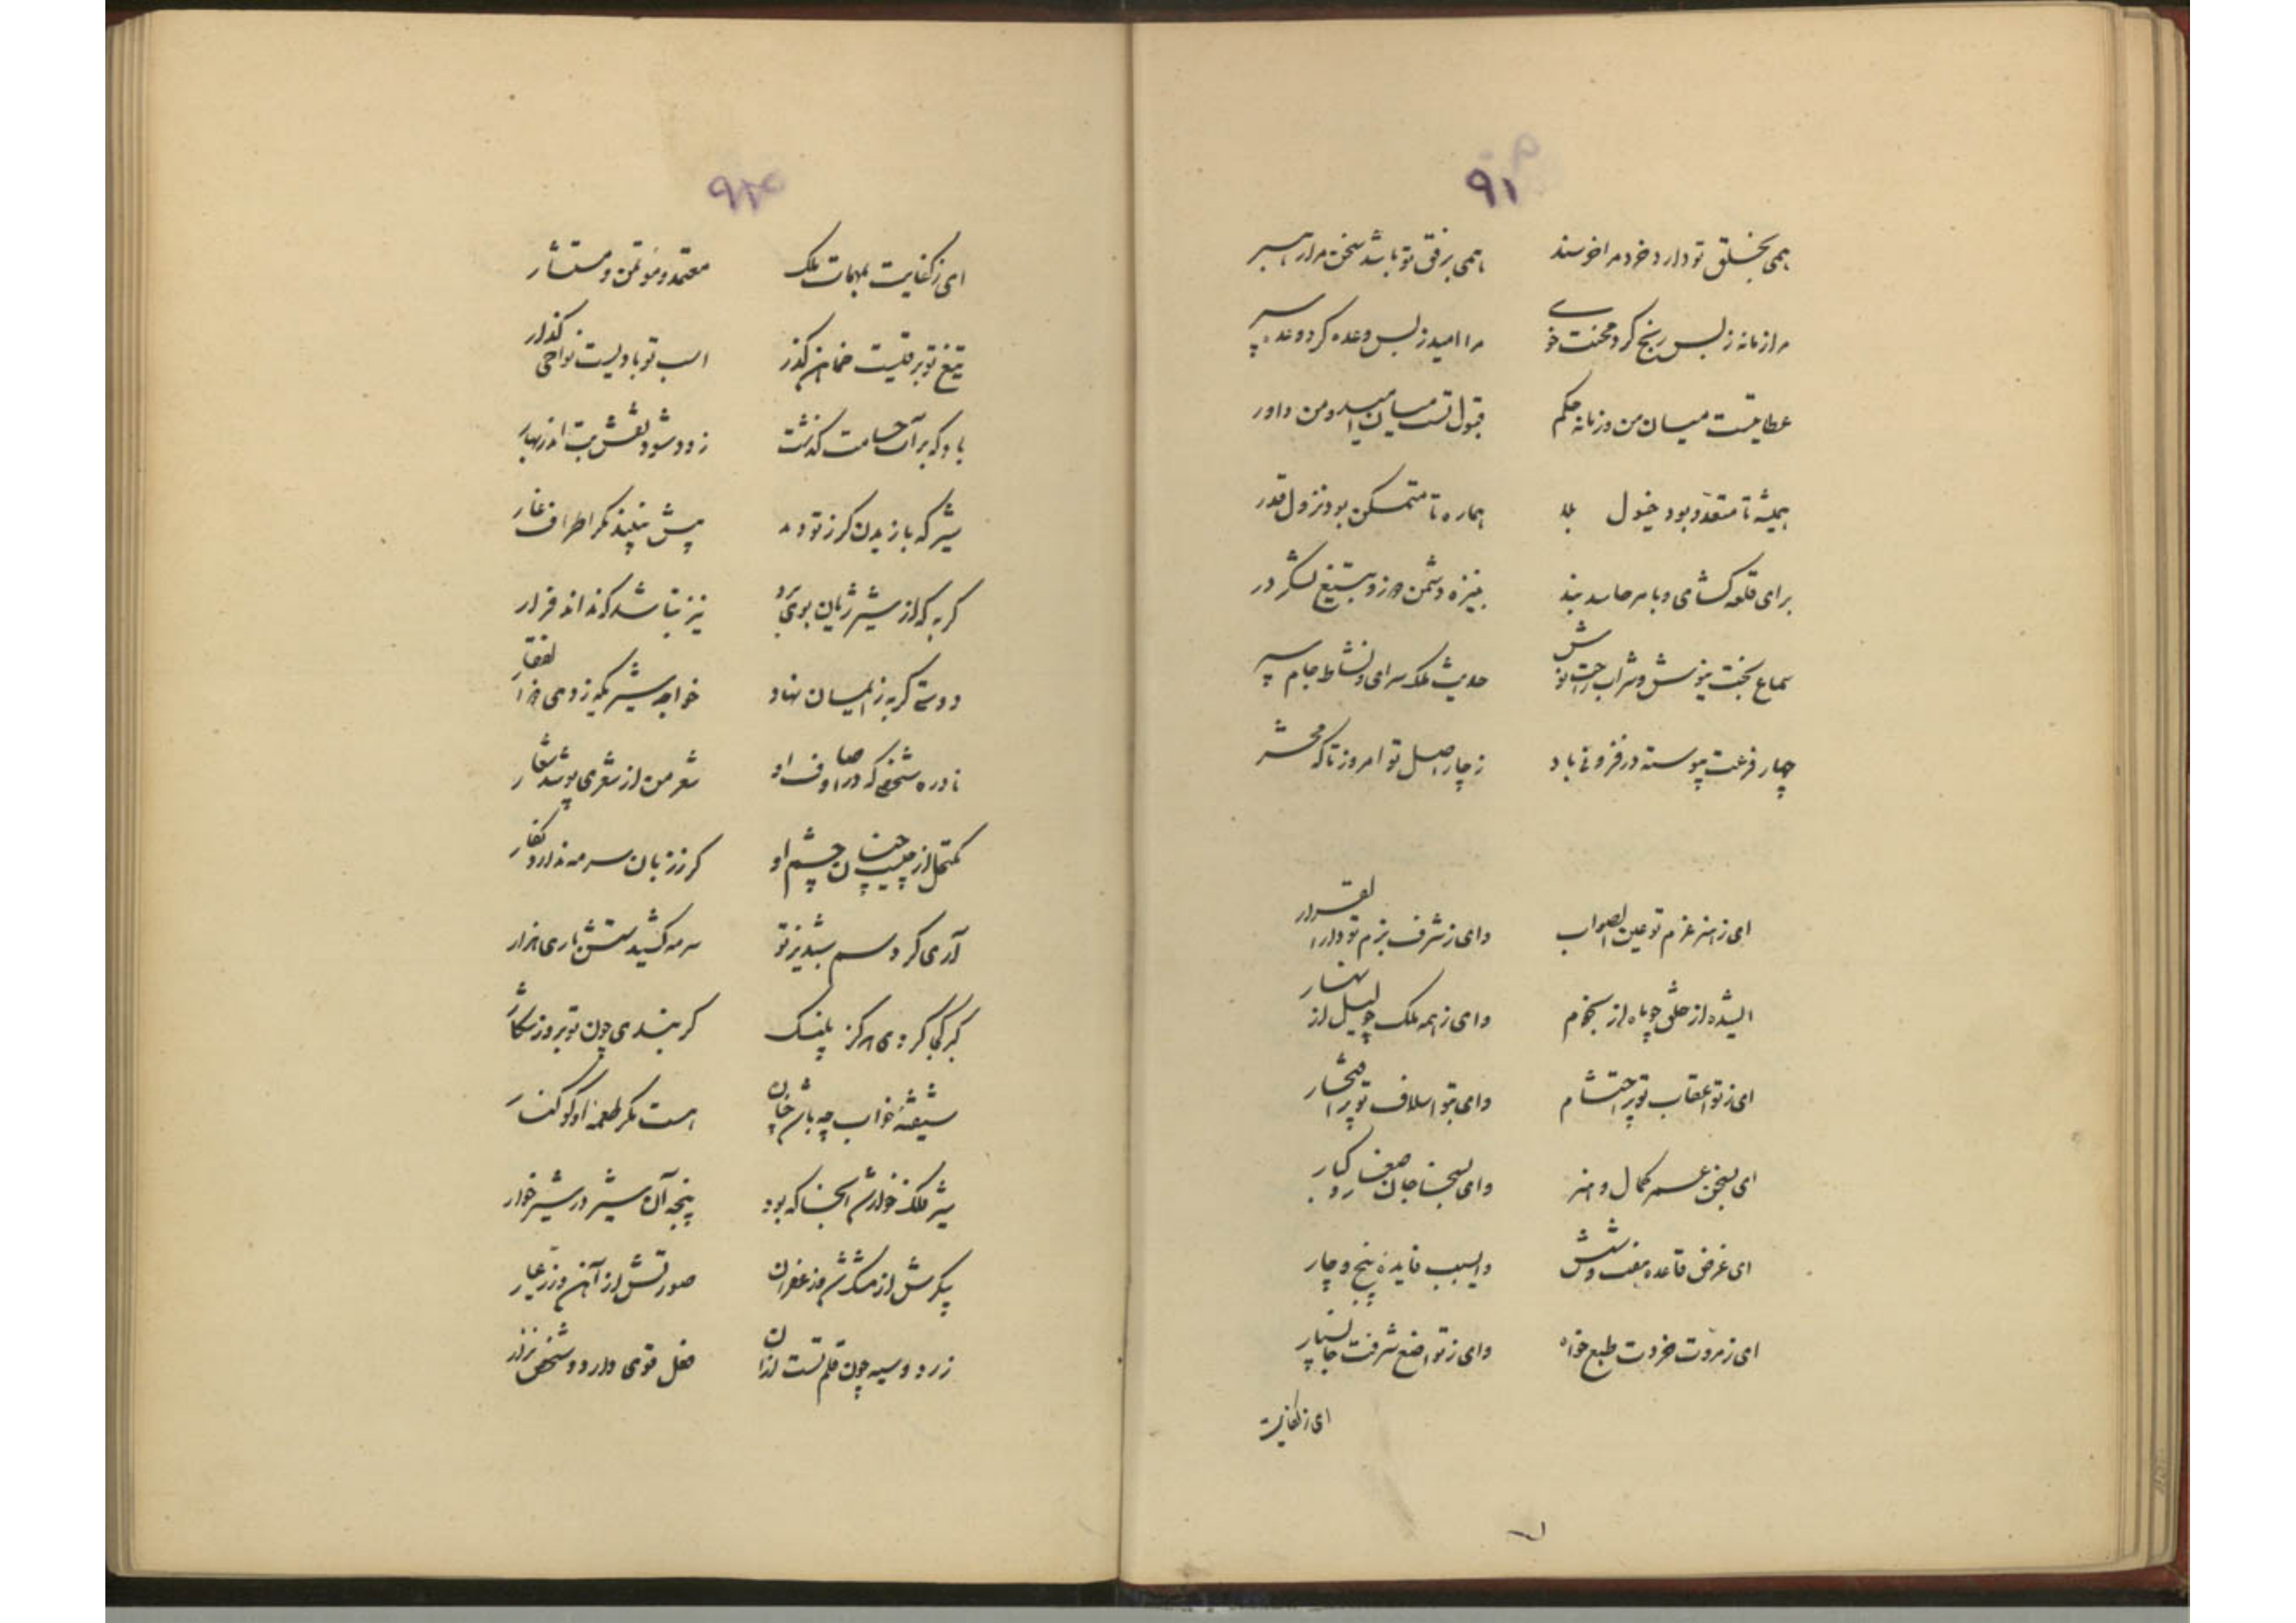 ۹۱
همی بخلق تو دارد خرد مرا خرسند همی برفق تو باشد سخن مرا رهبر
مرا زمانه ز بس رنج کرد محنت خوی مرا امید ز بس وعده کرد وعده سپر
عطا تست میان من و زمانه حکم قبول تست میان امید و من داور
همیشه تا متعدد بود خیول بلا هماره تا متمکن بود نزول قدر
برای قلعه گشای و بامر حاسد بند بنیزه دشمن دوز و بتیغ لشکر در
سماع بخت نیوش و شراب راحت نوش حدیث ملک سرای و نشاط جام سپر
چهار فرعت پیوسته در فزونی باد ز چار اصل تو امروز تا که محشر
ای ز هنر عزم تو عین الصواب وای ز شرف بزم تو دار القرار
ای شده از خلق چو ماه از نجوم وای ز همه ملک چو لیل از نهار
ای ز تو اعقاب تو پر احتشام وای بتو اسلاف تو پر افتخار
ای بسخن عمر کمال و هنر وای بسخا جان صغار و کبار
ای غرض قاعده هفت و شش وای سبب فایده پنج و چار
ای ز مروت خردت طبع خواه وای ز تواضع شرفت جان سپار
ای ز کفایت
۹۲
ای ز کفایت بمهمات ملک معتمد و مؤتمن و مستشار
تیغ تو برقیست ضمان گذر اسب تو بادیست نواحی گذار
باد که بر آب حسامت گذشت زود شود نقش بت اندر بهار
شیر که باریدن گرز تو دید پیش نبیند مگر اطراف غار
گربه که از شیر ژیان بوی برد نیز نباشد که نداند فرار
دوستی گربه ز ایمان نهاد خواجه شیری که زدی ذوالفقار
نادره شخصی که در اوصاف او شعر من از شعری پوشد شعار
مکتحل از چیست چنان چشم او گر ز زبان سرمه ندارد بکار
آری گرد سم شبدیز تو سرمه کشیدستش باری هزار
کبر کجا گردد هرگز پلنگ گر بندی چون تو بروز شکار
شیفته خواب چه باشد چنان هست مگر طعمه او کوکنار
شیر فلک خوارش از آنجا که بود پنجه آن شیر در شیر خوار
پیکرش از مشک نشد و زعفران صورتش از آهن و زر عیار
زرد و سیه چون قلم تست از آن فعل قوی دارد و شخص نزار